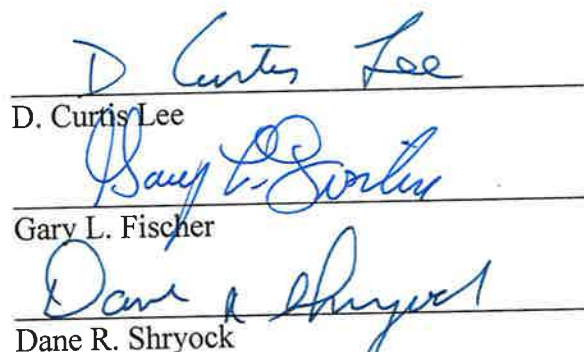 D Curtis Lee
D. Curtis Lee
Gary L.
Gary L. Fischer
Dane R Shryock
Dane R. Shryock